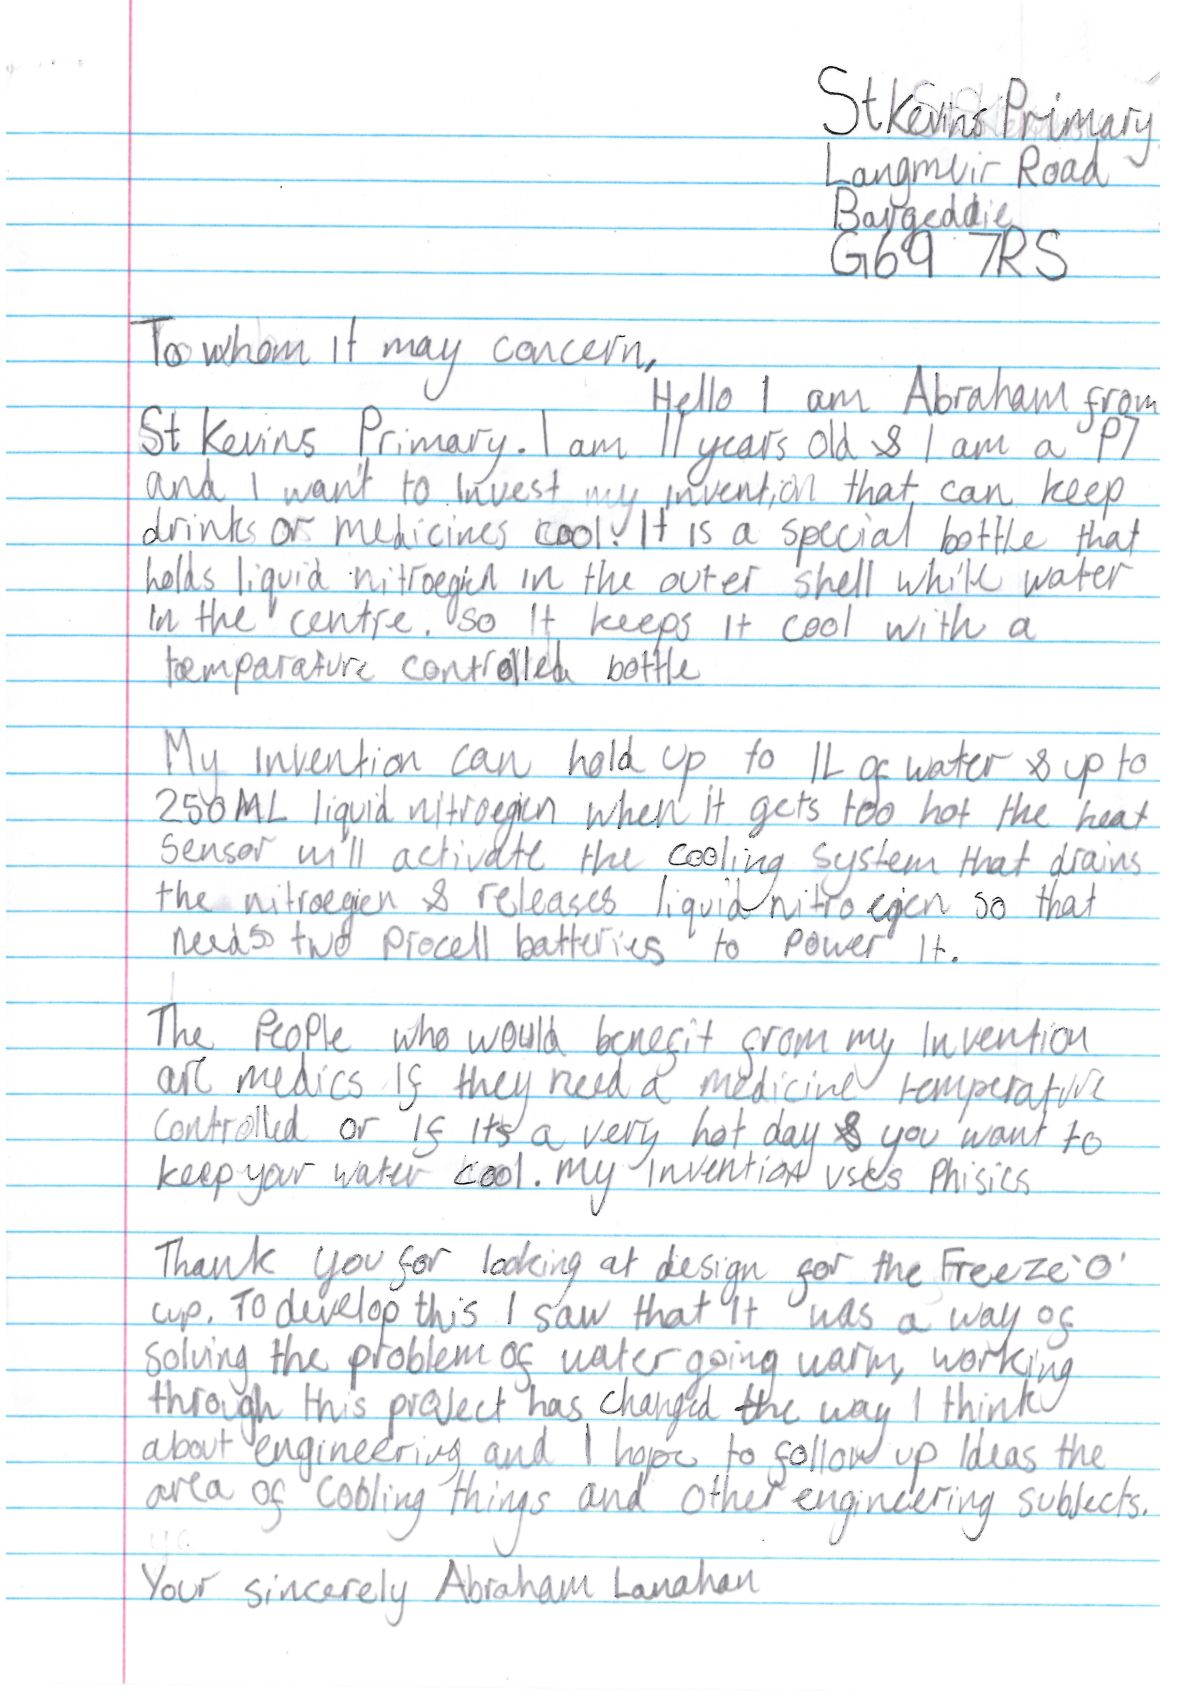 St Kevins Primary
Langmuir Road
Bargeddie
G69 7RS
To whom it may concern,
Hello I am Abraham from
St Kevins Primary. I am 11 years old & I am a P7
and I want to invest my invention that can keep
drinks or medicines cool. It is a special bottle that
holds liquid nitroegin in the outer shell while water
in the centre. so it keeps it cool with a
temparature controlled bottle
My invention can hold up to 1L of water & up to
250ML liquid nitroegien when it gets too hot the heat
sensor will activate the cooling system that drains
the nitroegien & releases liquid nitroegien so that
needs two Procell batteries to power it.
The People who would benefit from my invention
are medics if they need a medicine temperature
controlled or if its a very hot day & you want to
keep your water cool. my invention uses Phisics
Thank you for looking at design for the Freeze'O'
cup. To develop this I saw that it was a way of
solving the problem of water going warm, working
through this project has changed the way I think
about engineering and I hope to follow up Ideas the
area of cooling things and other engineering subjects.
Your sincerely Abraham Lanahan